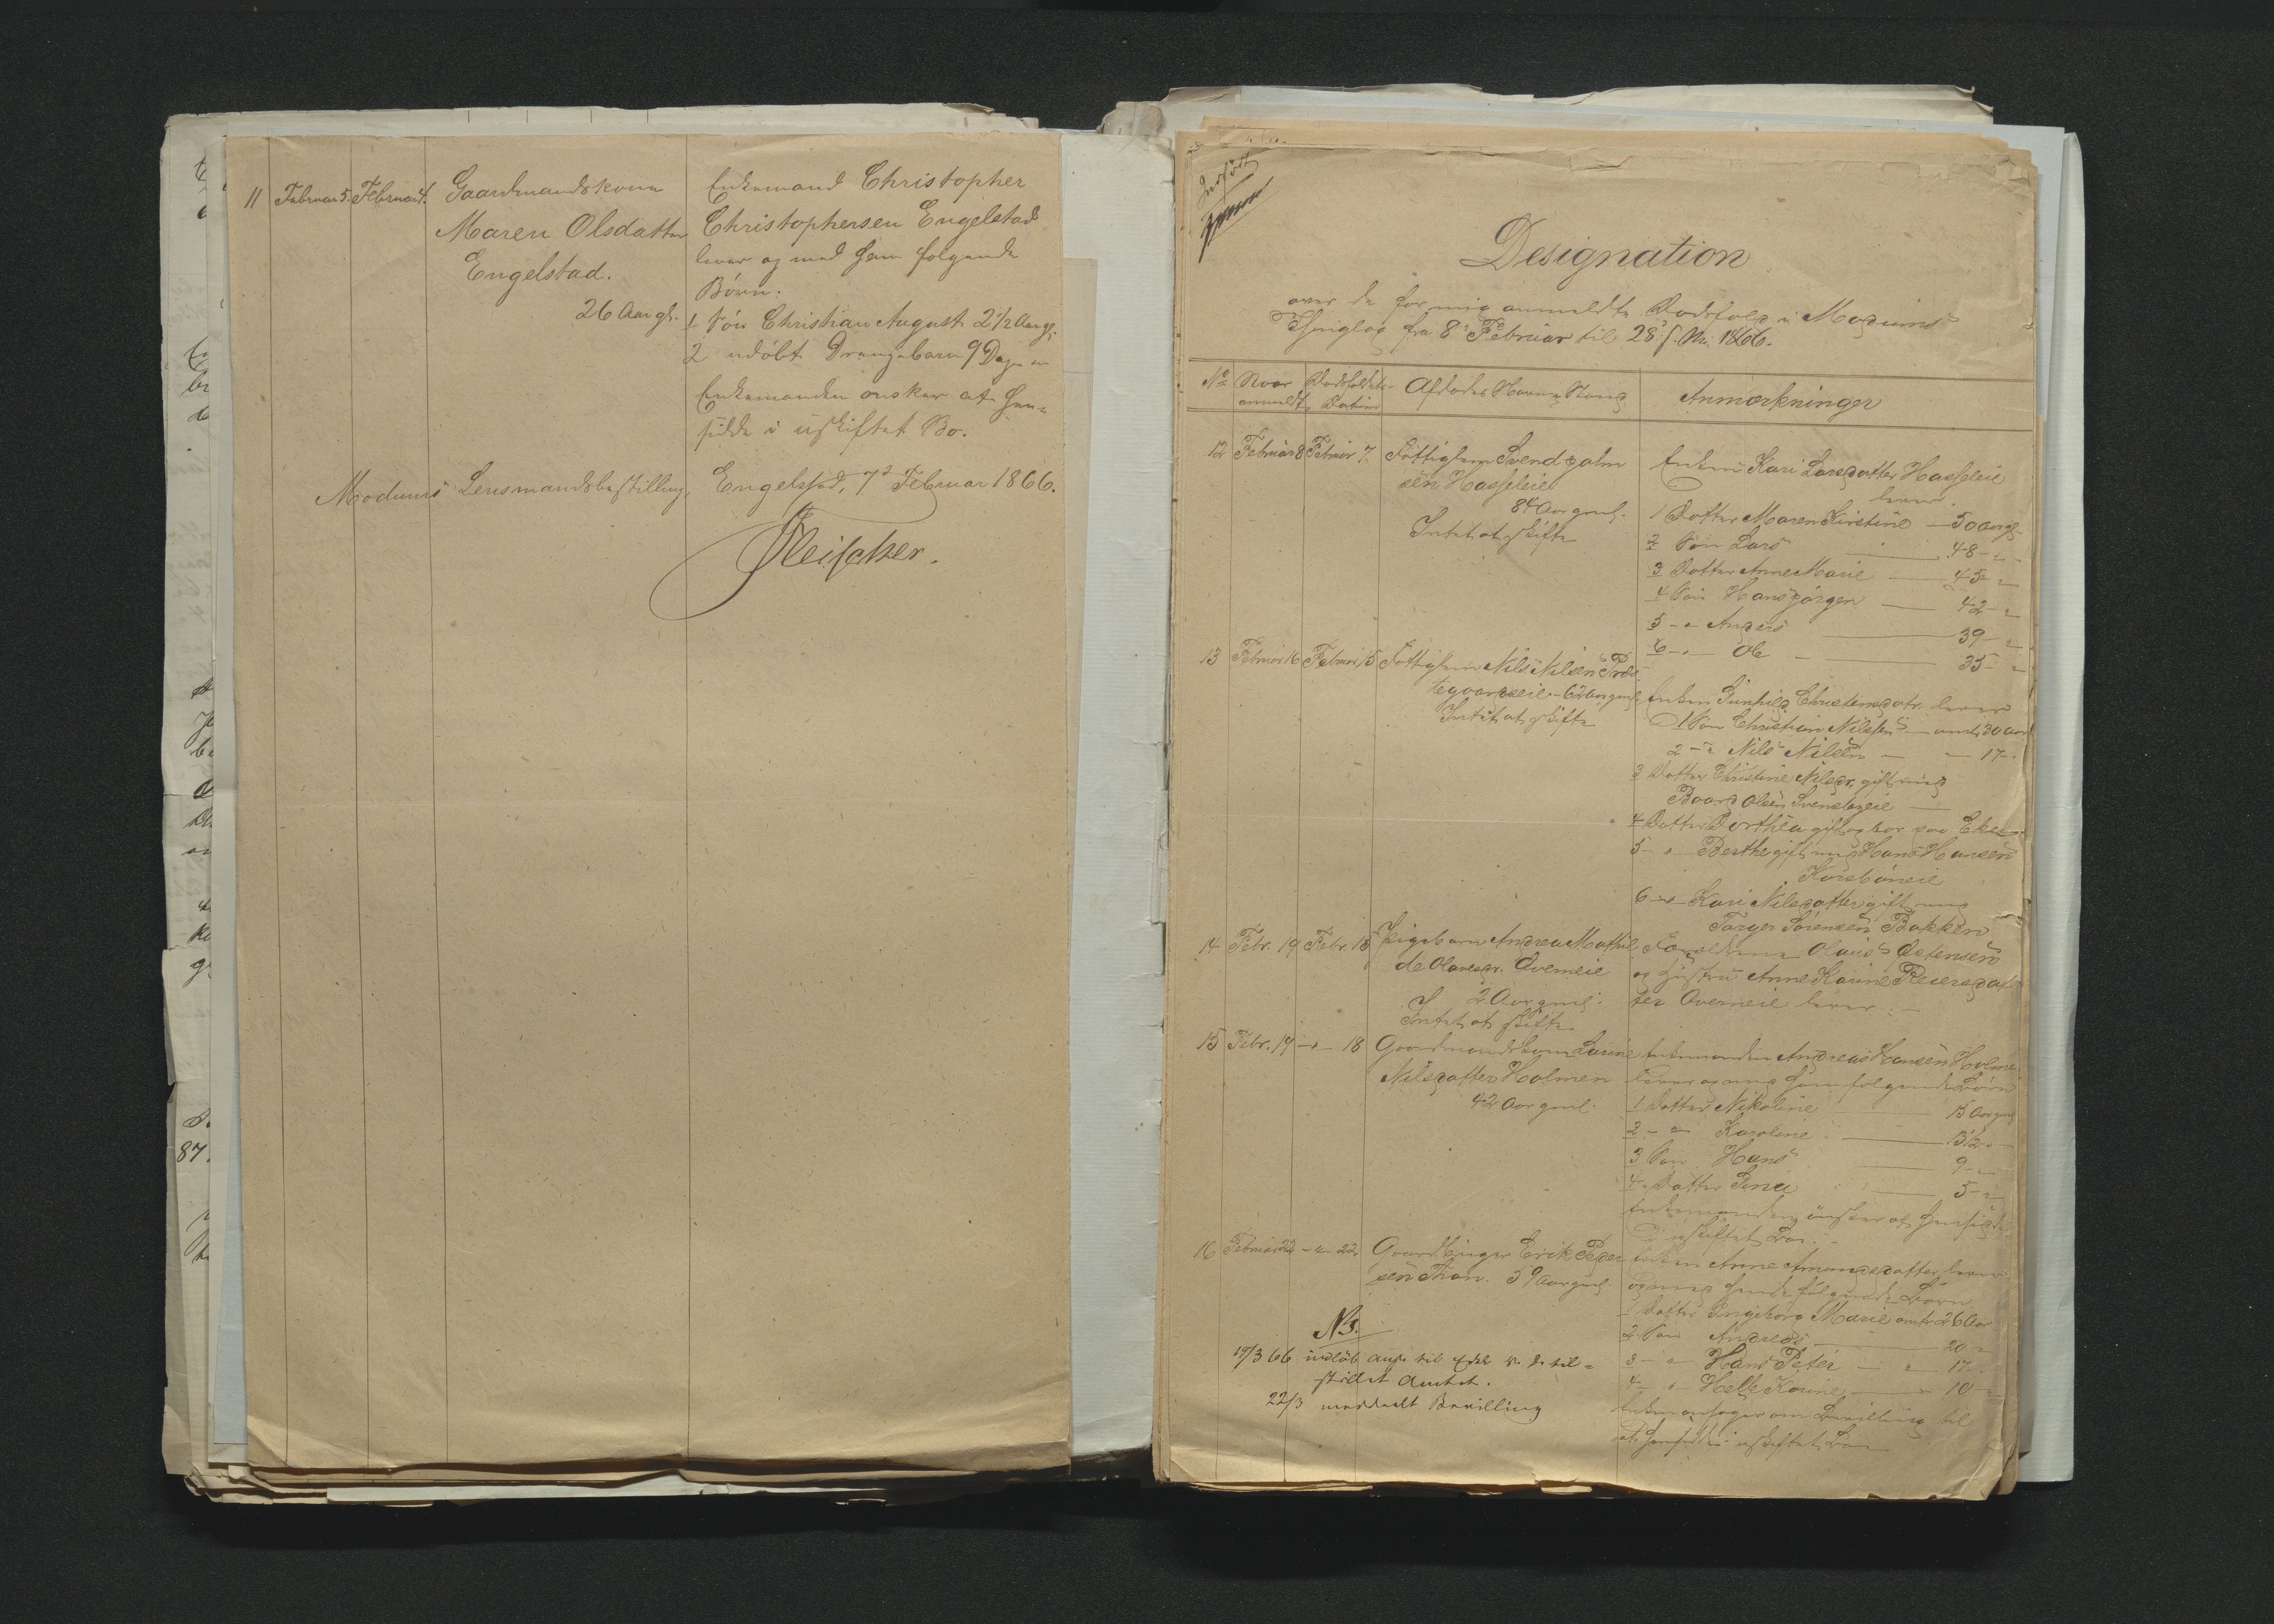 11 Februar 5. Februar 4. Gaardmandskone
Maren Olsdatter
Engelstad.
26 Aar gl.
Enkemand Christopher
Christophersen Engelstad
lever og med ham følgende
Börn:
1 Sön Christian August 2 1/2 Aar gl.
2 udöbt Drengebarn 9 Dage
Enkemanden önsker at hen-
sidde i uskiftet Bo.
Modums Lensmandsbestilling, Engelstad, 7de Februar 1866.
Fleischer.
Indført
Designation
over de for mig anmeldte Dödsfald i Modums
Thinglag fra 8de Februar til 28de s. M. 1866.
No Naar anmeldt Dödsfaldets Datum Afdödes Navn og Stand Anmærkninger
12 Februar 8 Februar 7 Fattiglem Svend
sen Hassleiet
84 Aar gml.
Intet at skifte
Enken Kari Larsdatter Hassleiet
lever.
1 Datter Maren Kirstine — 50 Aar gl.
2 Sön Lars — 48 — "
3 Datter Anne Marie — 45 "
4 Sön Hans Jörgen — 42 — "
5 — " Anders — 39 — "
6 — " Ole — 35 — "
13 Februar 16 Februar 15 Fattiglem Nils Nilsen Præs-
tegaardseie — 62 Aar gml.
Intet at skifte
Enken Gunhild Christensdatr. lever
1 Sön Christian Nilsen — omtr. 30 Aar
2 — " Nils Nilsen — " — 17 —
3 Datter Christine Nilsdr. gift med
Baard Olsen
4 Datter Dorthea gift og bor paa Eker
5 — " Berthe gift med Hans Hansen
6 — " Kari Nilsdatter gift med
Targer Sörensen Bakken
14 Febr. 19 Febr. 15 Pigebarn Andrea Mathil-
de Olavesdr. Overneie
2 Aar gml.
Intet at skifte
Forældrene Olaus Östensen
og Hustru Anne Karine Reiersdat-
ter Overneie lever. —
15 Febr. 19 — " — 18 Gaardmandskone Larine
Nilsdatter Holmen
42 Aar gml.
Enkemanden Andreas Hansen Holmen
lever og med ham følgende Börn
1 Datter Nikoline — 15 Aar gml
2 — " Karoline — 13 1/2 "
3 Sön Hans — 9 — "
4 Datter Lina — 5 — "
Enkemanden önsker at hensidde
i uskiftet Bo. —
16 Februar 22 — " — 22 Gaardbruger Erik Peder-
sen Thon. 59 Aar gml.
Enken Anne Amundsdatter lever
og med hende følgende Börn
1 Datter Ingeborg Marie omtr. 26 Aar
2 Sön Andreas — 20 "
3 — " Hans Peter — " 17 —
4 — " Helle Karine — " 10 — "
Enken ansøger om Bevilling til
at hensidde i uskiftet Bo
NB.
17/3 66 indløb til
stillet Amtet.
22/3 meddelt Bevilling